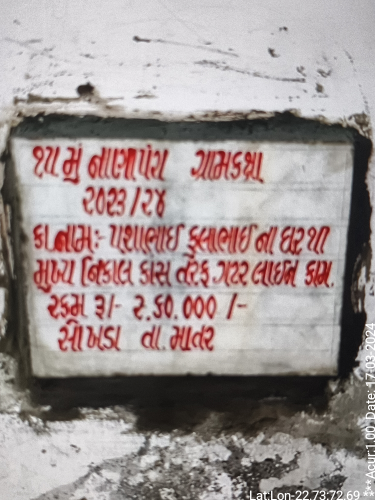 ૧૫ મું નાણાપંચ ગ્રામકક્ષા
૨૦૨૩/૨૪
કા.નામ:- પશાભાઈ ફુલાભાઈ ના ઘર થી
મુખ્ય નિકાલ કાંસ તરફ ગટર લાઈન કામ.
રકમ રૂ/- ૨.૬૦.૦૦૦ /-
સોખડા તા. માતર
Lat:Lon-22.73:72.69
***Acur:1.00 Date: 17-03-2024